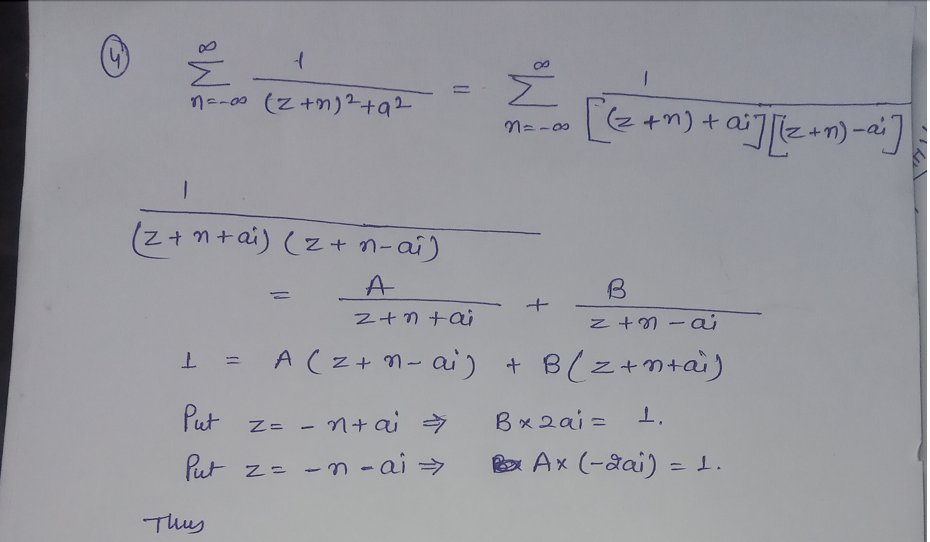 (4) ∞ ∑ n=-∞ 1 / (z+n)²+a² = ∞ ∑ n=-∞ 1 / [(z+n)+ai][(z+n)-ai]
1 / (z+n+ai)(z+n-ai)
= A / z+n+ai + B / z+n-ai
1 = A(z+n-ai) + B(z+n+ai)
Put z = -n+ai ⇒ B×2ai = 1.
Put z = -n-ai ⇒ A×(-2ai) = 1.
Thus